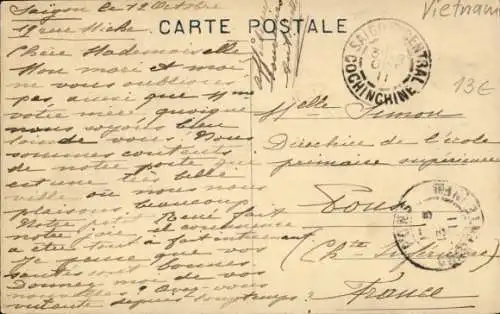 Saigon le 12 Octobre
CARTE POSTALE
Vietnam
13€
SAIGON CENTRAL
COCHINCHINE
11
Chère Mademoiselle
Mon mari et moi ne
vous oublions
pas, ainsi que Mme
votre mère, quoique
nous soyons bien
loin de vous. Nous
sommes contents
de notre poste qui
est une très belle
ville où nous nous
plaisons beaucoup
Notre petit René fait
notre joie il commence
à être tout à fait
Je pense que vos
santés sont bonnes
Donnez moi de vos
nouvelles ? Avez-vous
depuis longtemps ?
Melle Simon
Directrice de l'école
primaire supérieure
Pons
(Chte Inférieure)
France